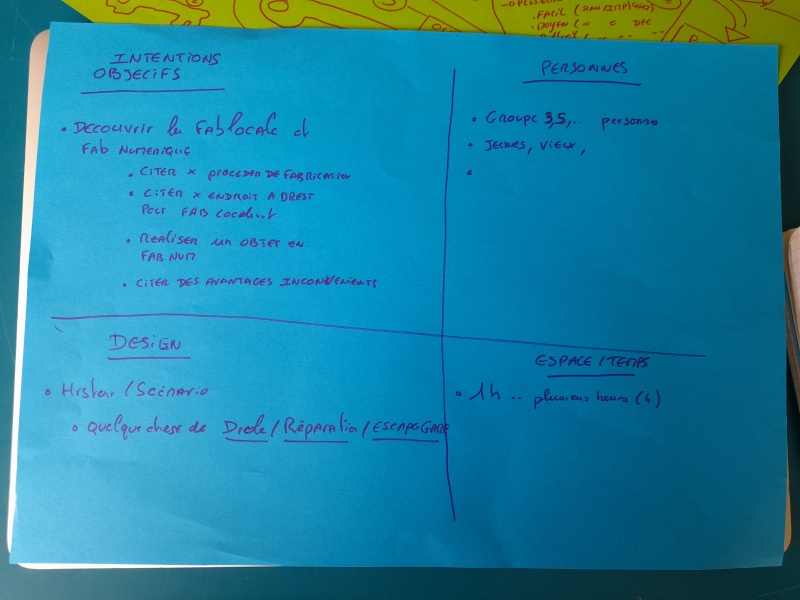 INTENTIONS
OBJECIFS
• DECOUVRIR la FABLOCALE et
FAB NUMERIQUE
• CITER x PROCEDER DE FABRICATION
• CITER x ENDROIT A BREST
POUR FAB
• REALISER un OBJET EN
FAB NUM
• CITER DES AVANTAGES INCONVENIENTS
PERSONNES
• GROUPE 3,5,.. personne
• JEUNES, VIEUX,
•
DESIGN
• Histoir / Scénario
• Quelque chose de Drole / Réparation / ESCAPE GAME
ESPACE / TEMPS
• 1h .. plusieurs heures (4)
. FACIL
. MOYEN ( = = DEC